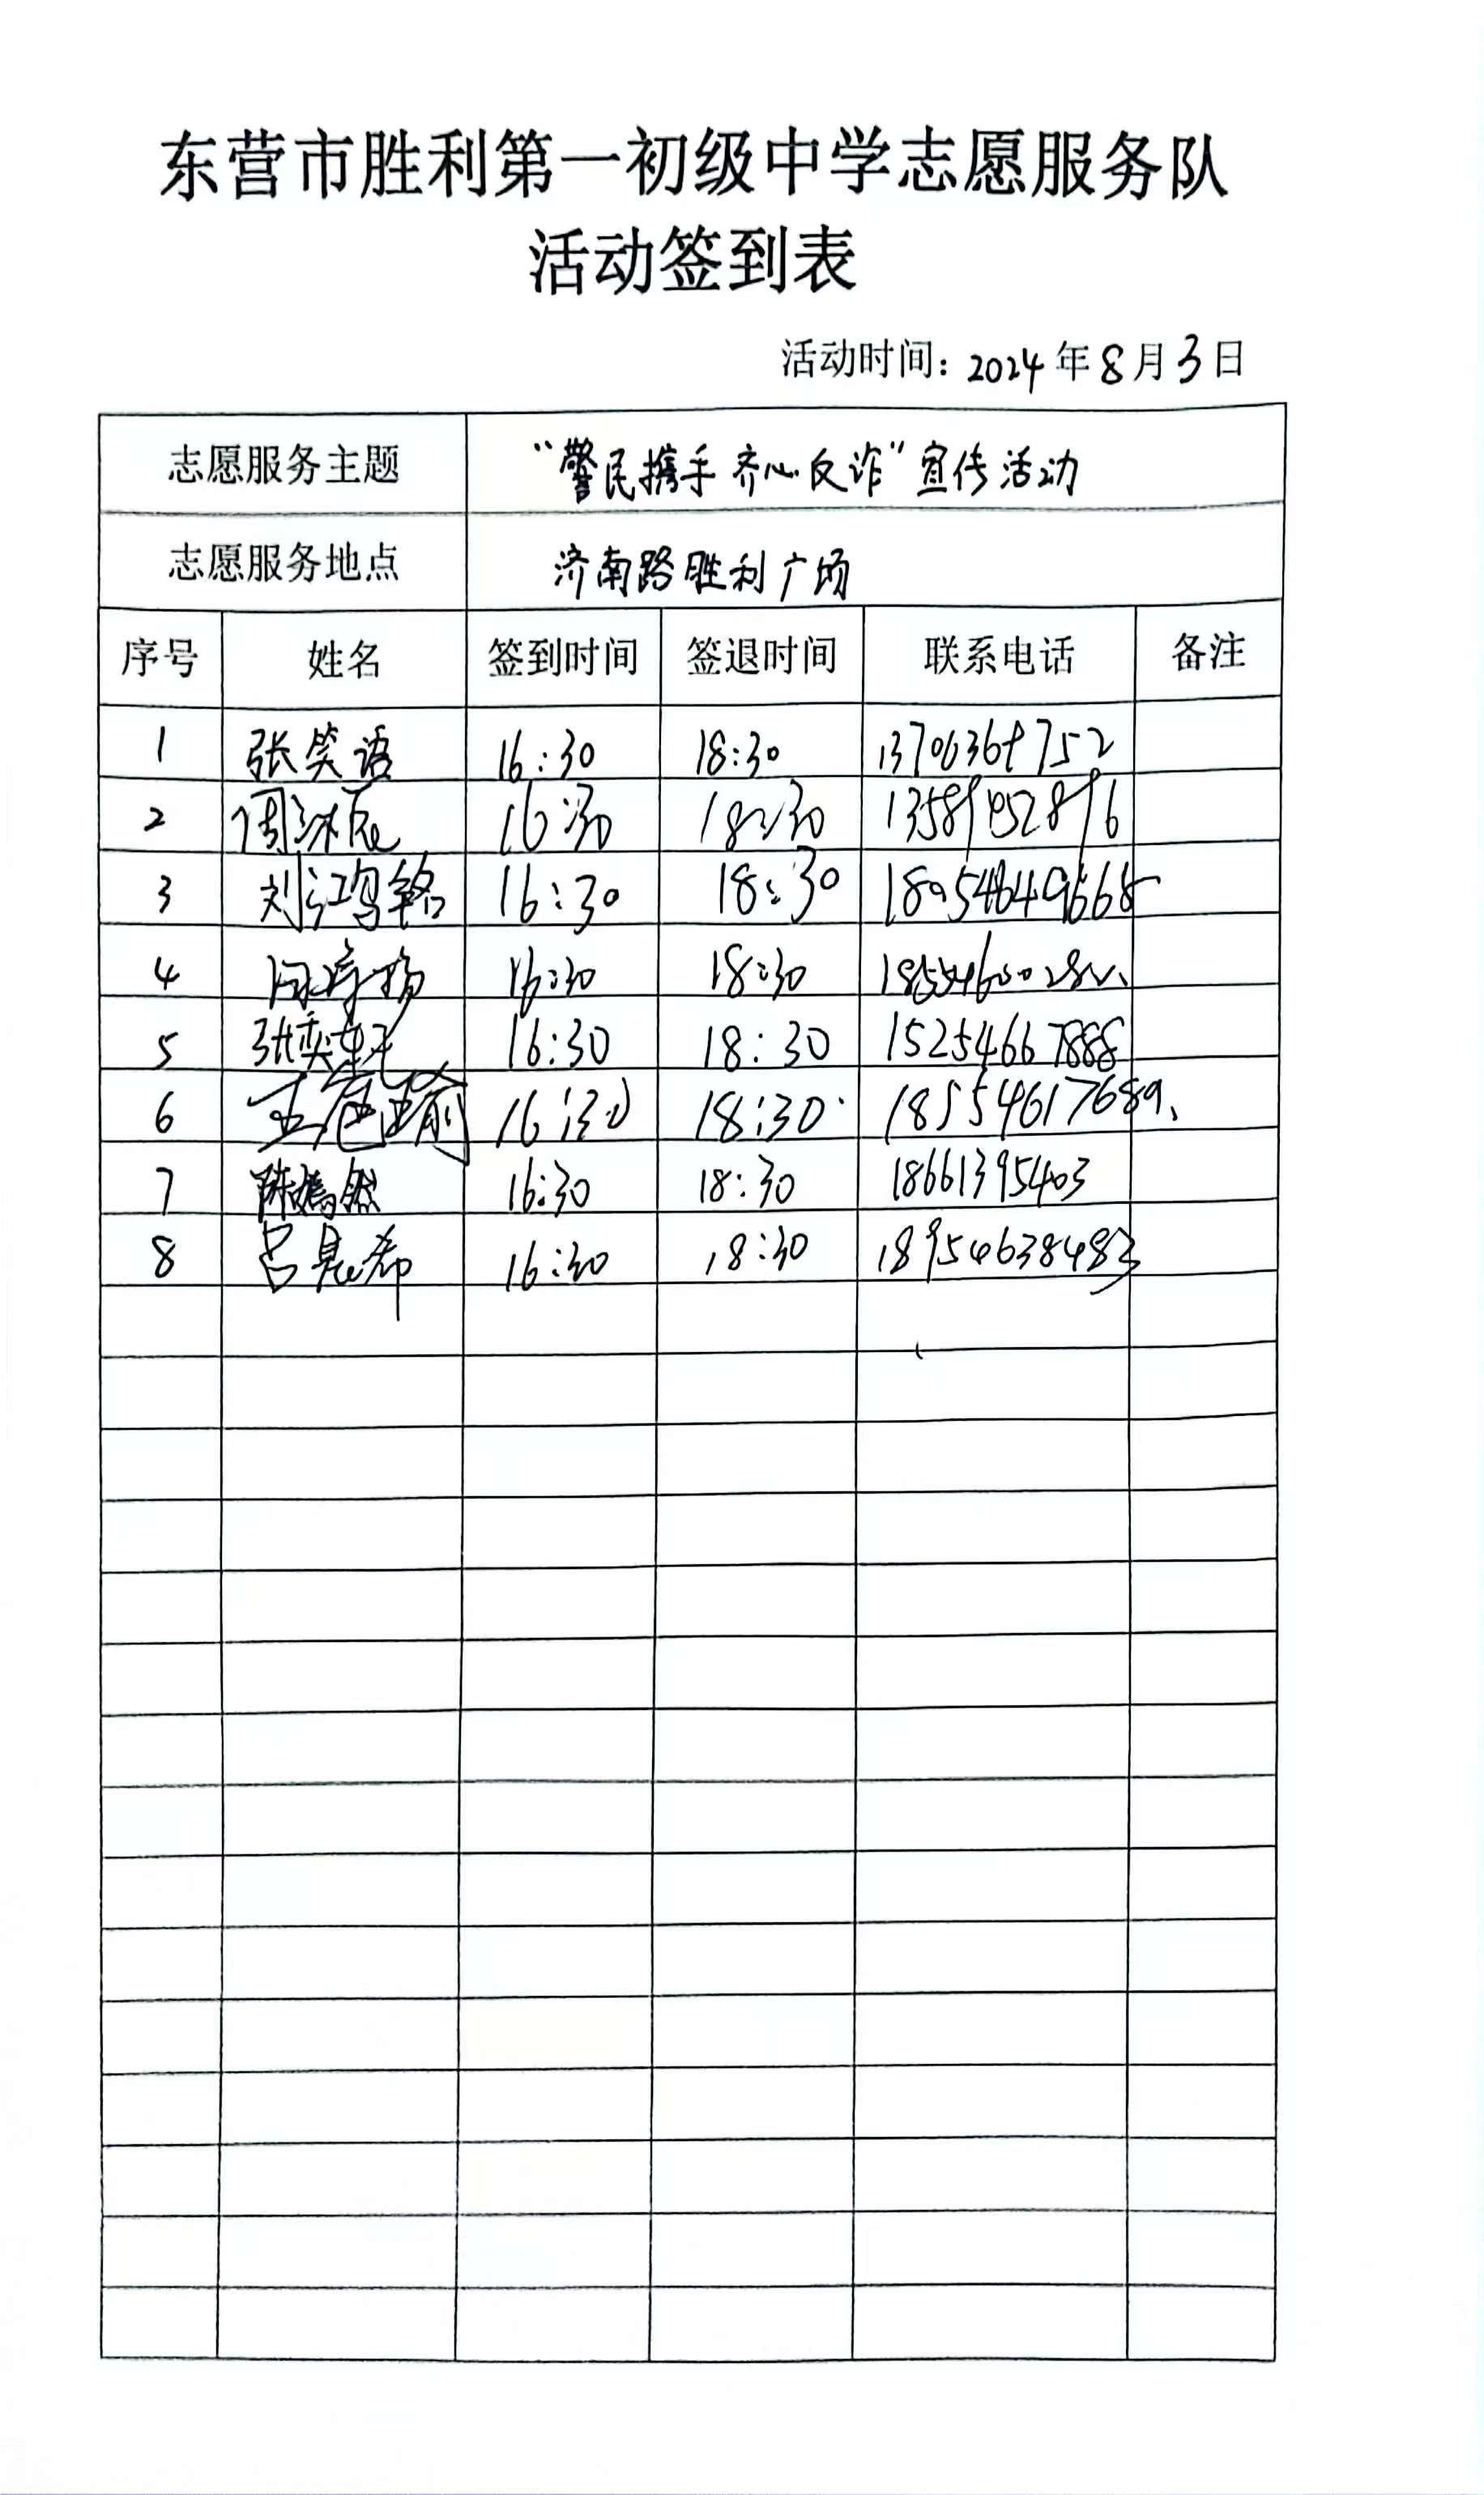 东营市胜利第一初级中学志愿服务队
活动签到表
活动时间：2024年8月3日
志愿服务主题 “警民携手 齐心反诈”宣传活动
志愿服务地点 济南路胜利广场
序号 姓名 签到时间 签退时间 联系电话 备注
1 张笑语 16:30 18:30
2 16:30 18:30
3 刘鸿铭 16:30 18:30
4 16:30 18:30
5 16:30 18:30 15254667888
6 16:30 18:30 18554617689
7 陈嫣然 16:30 18:30 18661395403
8 16:30 18:30 18954638483